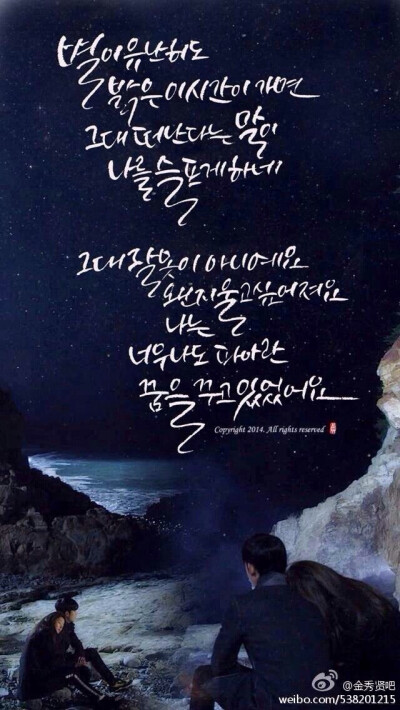 별이유난히도
밝은 이시간이 가면
그대 떠난다는 말이
나를 슬프게하네
그대 잘못이 아니에요
왠지 울고싶어져요
나는
너무나도 파아란
꿈을 꾸고 있었어요
Copyright 2014. All rights reserved
@金秀贤吧
weibo.com/538201215